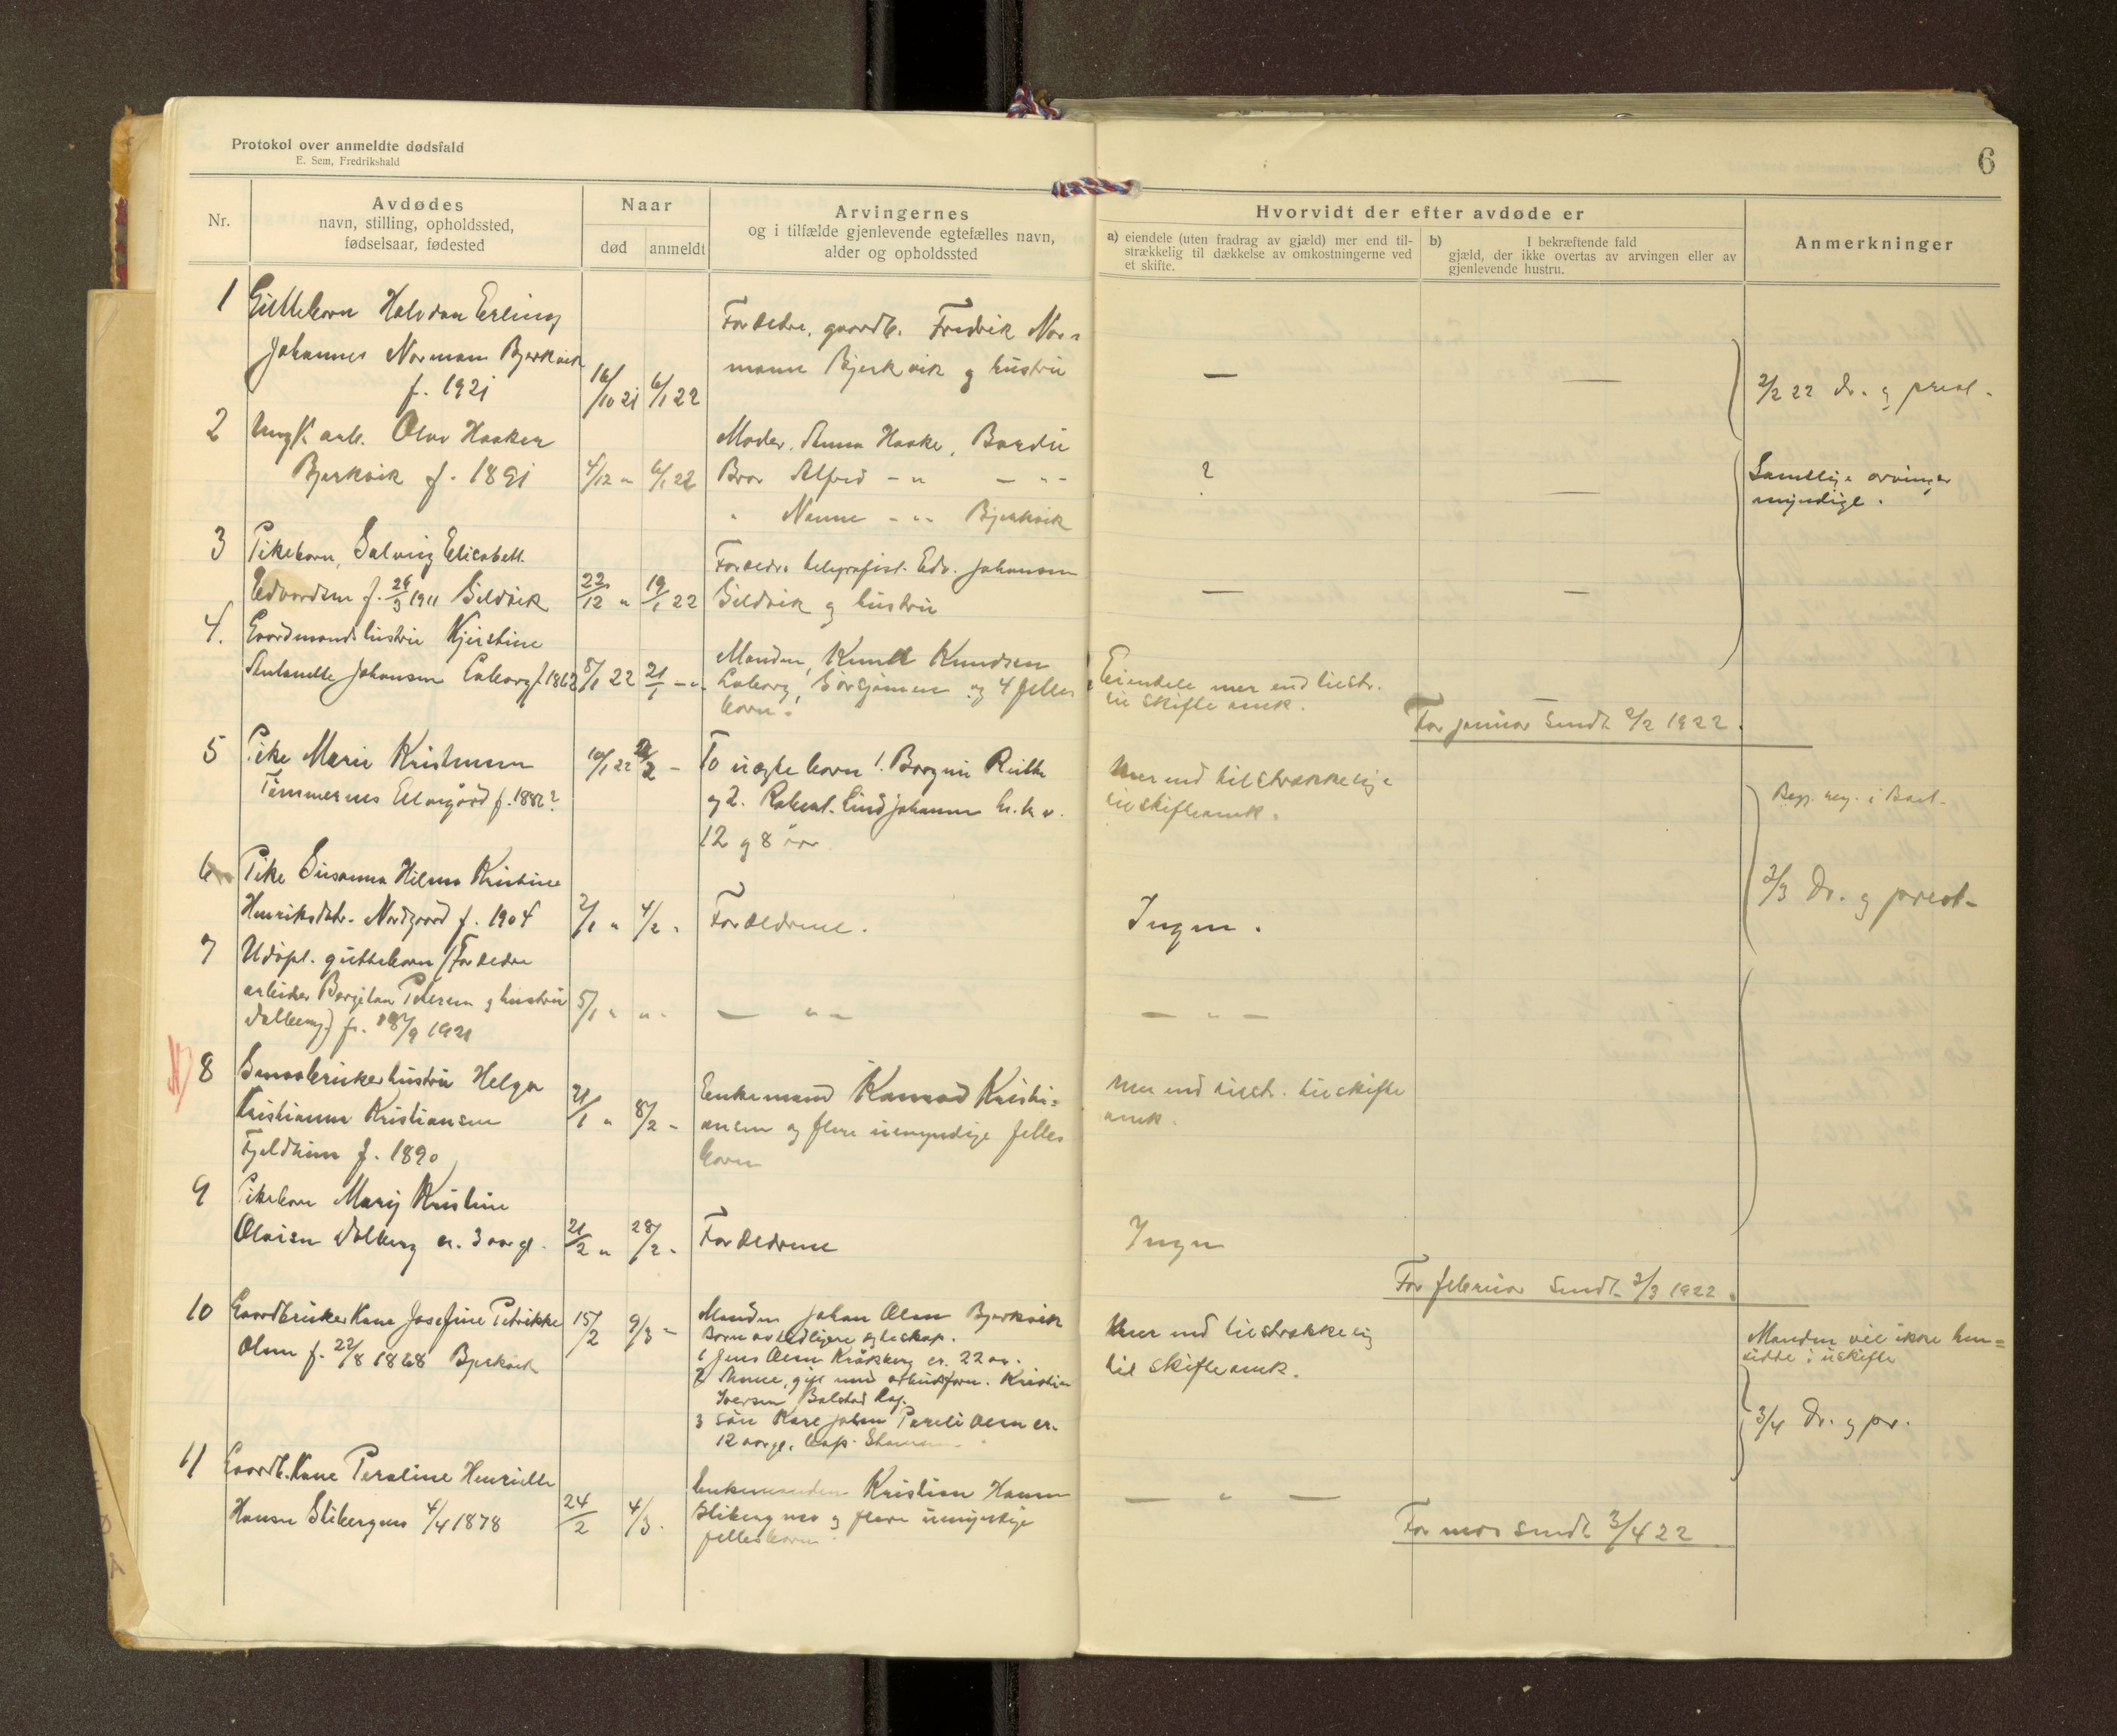 Protokol over anmeldte dødsfald
E. Sem, Fredrikshald
6
Nr.
Avdødes
navn, stilling, opholdssted,
fødselsaar, fødested
Naar
død
anmeldt
Arvingernes
og i tilfælde gjenlevende egtefælles navn,
alder og opholdssted
Hvorvidt der efter avdøde er
a) eiendele (uten fradrag av gjæld) mer end til-
strækkelig til dækkelse av omkostningerne ved
et skifte.
b) I bekræftende fald
gjæld, der ikke overtas av arvingen eller av
gjenlevende hustru.
Anmerkninger
1 Guttebarn Halvdan Erling
Johannes Normann Bjerkvik
f. 1921
16/10 21
6/1 22
Forældre, gaardb. Fredrik Nor-
mann Bjerkvik g hustru
—
—
2/2 22 dr. g prest.
2 Ungk. arb. Olav Haaker
Bjerkvik f. 1891
4/12 "
6/1 22
Moder, Anna Haake, Bardu
Bror Alfred - " — " -
" Nanne - " - Bjerkvik
?
—
Samtlige arvinger
myndige.
3 Pikebarn, Solveig Elisabeth
Edvardsen f. 26/3 1911 Seldvik
22/12 "
19/1 22
Forældre telegrafist. Edv. Johansen
Seldvik g hustru
—
—
4. Gaardmandshustru Kjerstine
Antonette Johansen Laberg f. 1862
8/1 22
21/1 - " -
Manden, Knut Knudsen
Laberg, Sørgjæmen og 4 felles
barn.
Eiendele mer end tilstr.
til skifte omk.
For januar sendt 2/2 1922.
5 Pike Marie Kristensen
Tømmernes Elvegård f. 1882?
10/1 22
To uægte barn 1. Borgni Ruth
og 2. Robert. Lind Johansen h.h.v.
12 g 8 år
Mer end tilstrækkelig
til skifteomk.
Beg. reg. i Baat.
6 Pike Susanna Hilma Kristine
Henriksdtr. Nordgaard f. 1904
2/1 "
4/2 "
Forældrene.
Ingen.
2/3 Dr. g prest-
7 Udøpt. guttebarn (Forældre
arbeider Bergiton Petersen g hustru
Valberg) f. 18/9 1921
5/1 "
" "
— " —
— " —
8 Smaabrukerhustru Helga
Kristianna Kristiansen
Fjeldheim f. 1890
21/1 "
8/2 -
Enkemand Konrad Kristi=
ansen og flere umyndige felles
barn
Mer end tilstr. til skifte
omk.
9 Pikebarn Mary Kristine
Olaisen Valberg ca. 3 aar gl.
21/2 "
28/2 -
Forældrene
Ingen
For februar sendt 2/3 1922.
10 Gaardbrukerkone Josefine Petrikke
Olsen f. 22/8 1868 Bjerkvik
15/2
9/3 -
Manden Johan Olsen Bjerkvik
Barn av tidligere egteskap.
1 Jens Olsen Kråkberg ca. 22 aar.
2 Anna, gift med arbeidsform. Kristian
Iversen, Balstad Lof.
3 Søn Karl Johan Pareli Olsen ca.
12 aar gl.
Mer end tilstrækkelig
til skifteomk.
Manden vil ikke hen=
sidde i uskifte
3/4 Dr. g pr.
11 Gaardb.kone Peraline Henriette
Hansen Slibergnes 4/4 1878
24/2
4/3.
Enkemanden Kristian Hansen
Slibergnes g flere umyndige
fellesbarn
— " —
For mars sendt 3/4 22